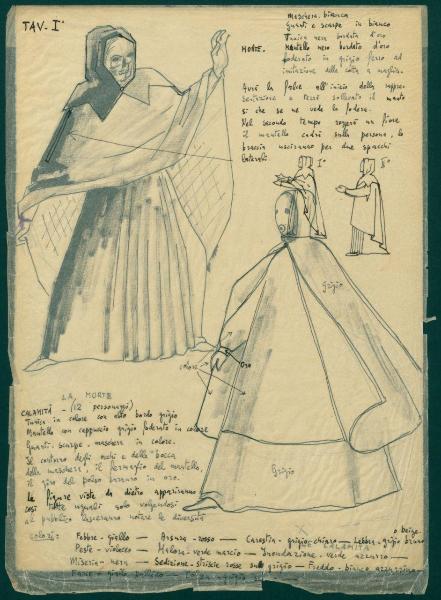 TAV. I°
Maschera bianca
Guanti e scarpe in bianco
Tunica nera bordata d'oro
MORTE. Mantello nero bordato d'oro
foderato in grigio ferro ad
imitazione della cotta a maglia.
Avrà la falce all'inizio della rappre-
sentazione e terrà sollevato il manto
sì che se ne veda la fodera.
Nel secondo tempo reggerà un fiore
il mantello cadrà sulla persona, le
braccia usciranno per due spacchi
laterali.
I° II°
Grigio
colore
oro
Grigio
LA MORTE
CALAMITÀ - (12 personaggi)
Tunica in colore con alto bordo grigio
Mantello con cappuccio grigio foderato in colore
Guanti. scarpe. maschera in colore.
Il contorno degli occhi e della bocca
della maschera, il fermaglio del mantello,
il giro del polso saranno in oro.
Le figure viste da dietro appariranno
così tutte uguali solo volgendosi
al pubblico lasceranno notare le diversità
o beige
Colori: Febbre - giallo — Arsura - rosso — Carestia - grigio chiaro — Lebbra - grigio bruno
LE CALAMITÀ
Peste - violaceo — Malora - verde marcio — Inondazione - verde azzurro —
Miseria - nera — Sedizione - striscie rosse sul grigio — Freddo - bianco azzurrino
Fame - giallo pallido —